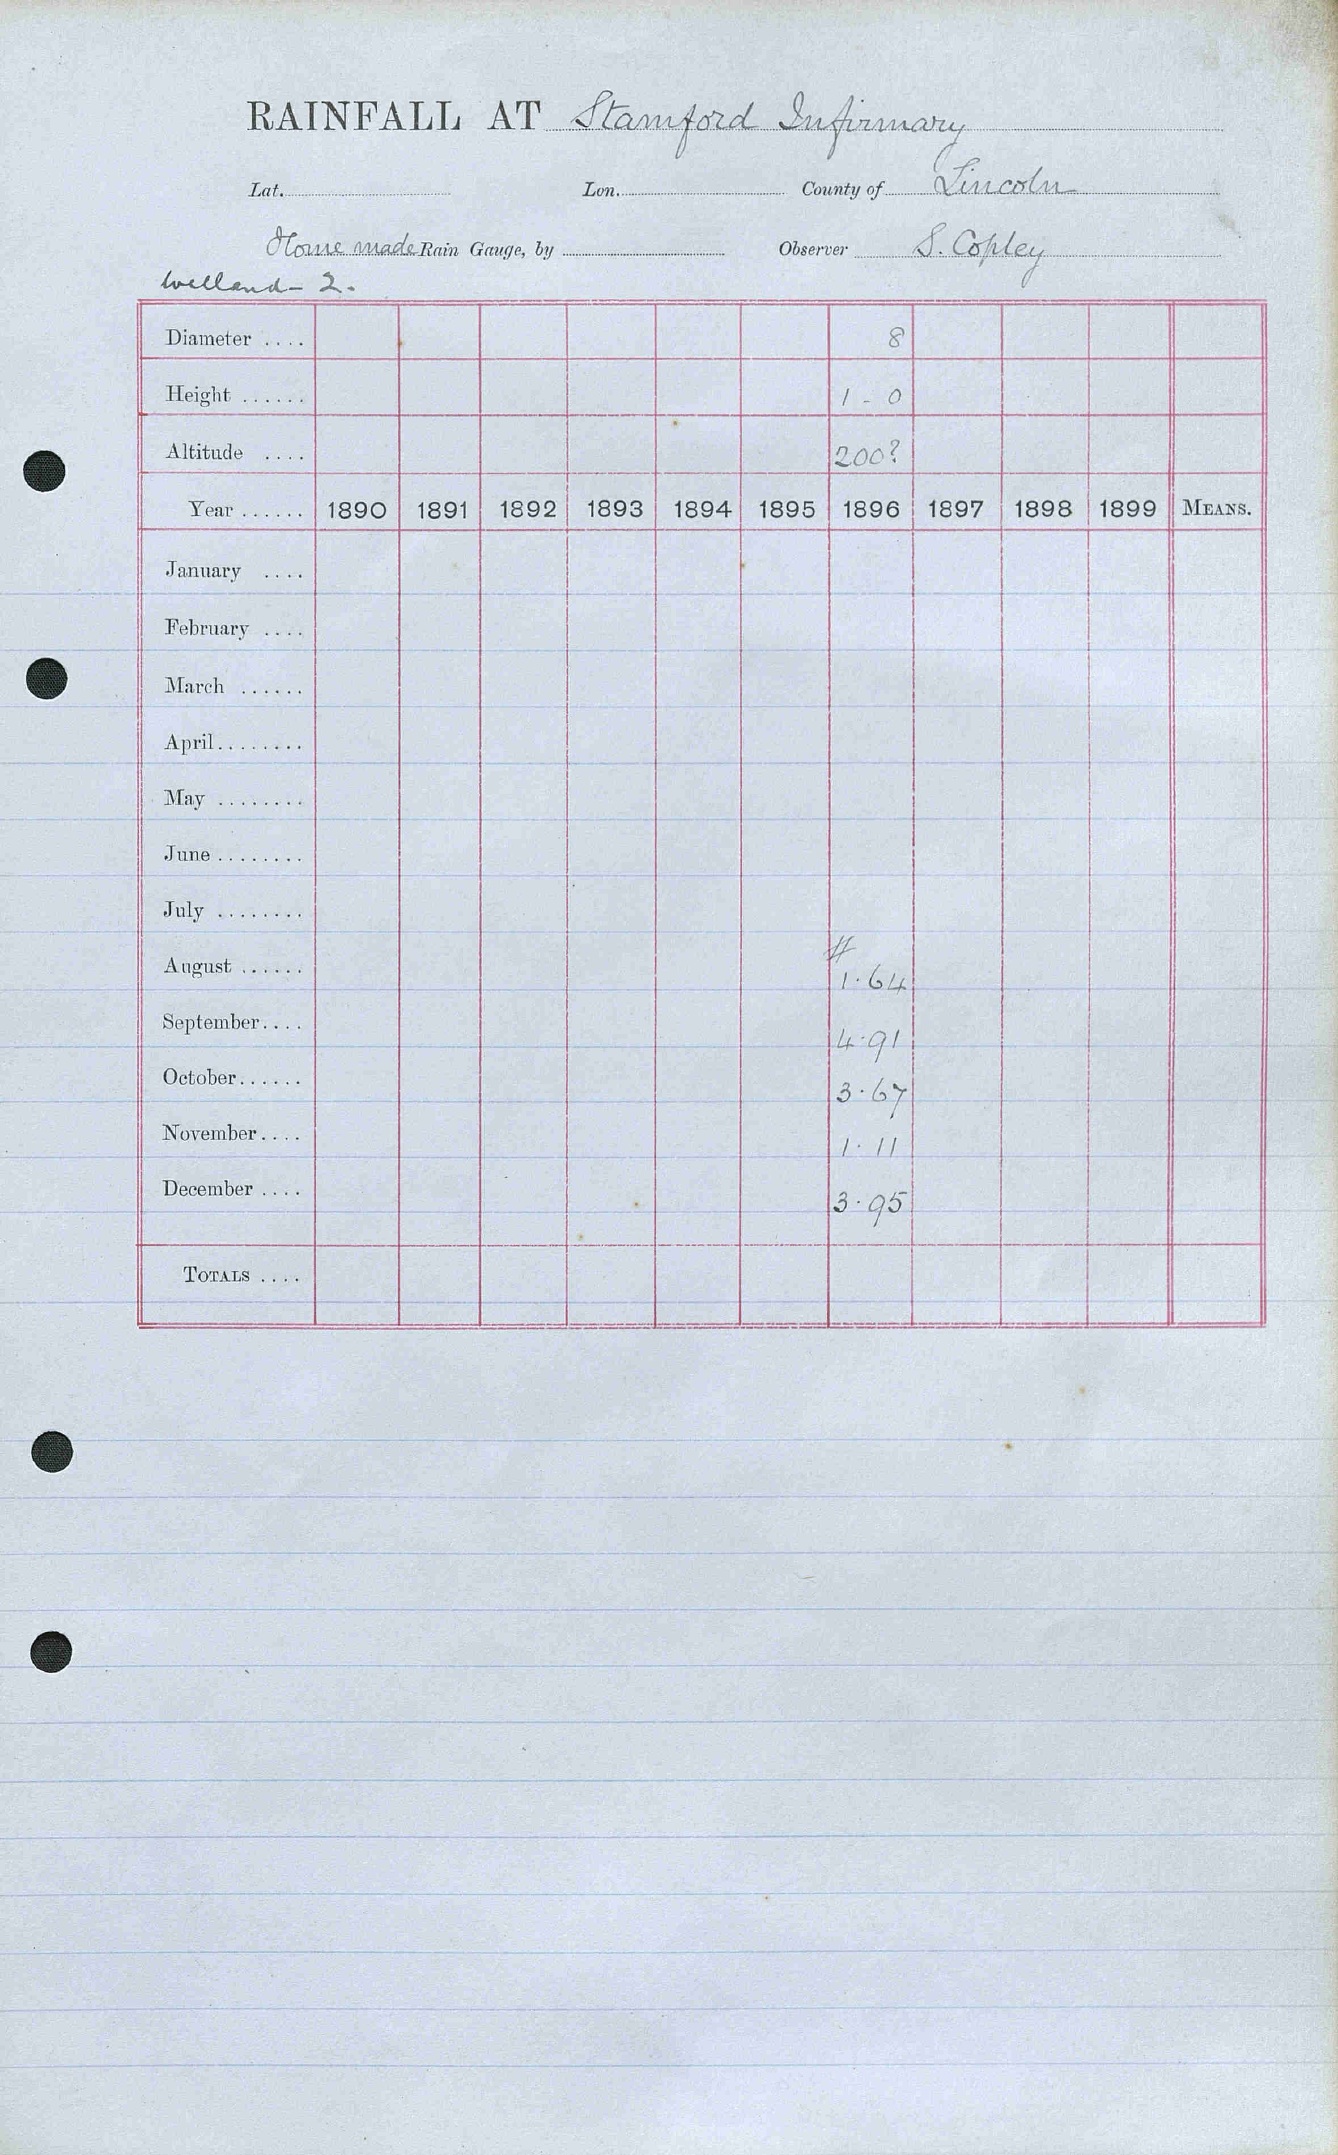 RAINFALL AT Stamford Infirmary
Lat. Lon. County of Lincoln
Home made Rain Gauge, by Observer S. Copley
Welland - 2.
Diameter .... 8
Height ...... 1 - 0
Altitude .... 200?
Year ...... 1890 1891 1892 1893 1894 1895 1896 1897 1898 1899 MEANS.
January ....
February ....
March ......
April........
May ........
June ........
July ........
#
August ...... 1.64
September.... 4.91
October...... 3.67
November.... 1.11
December .... 3.95
TOTALS ....